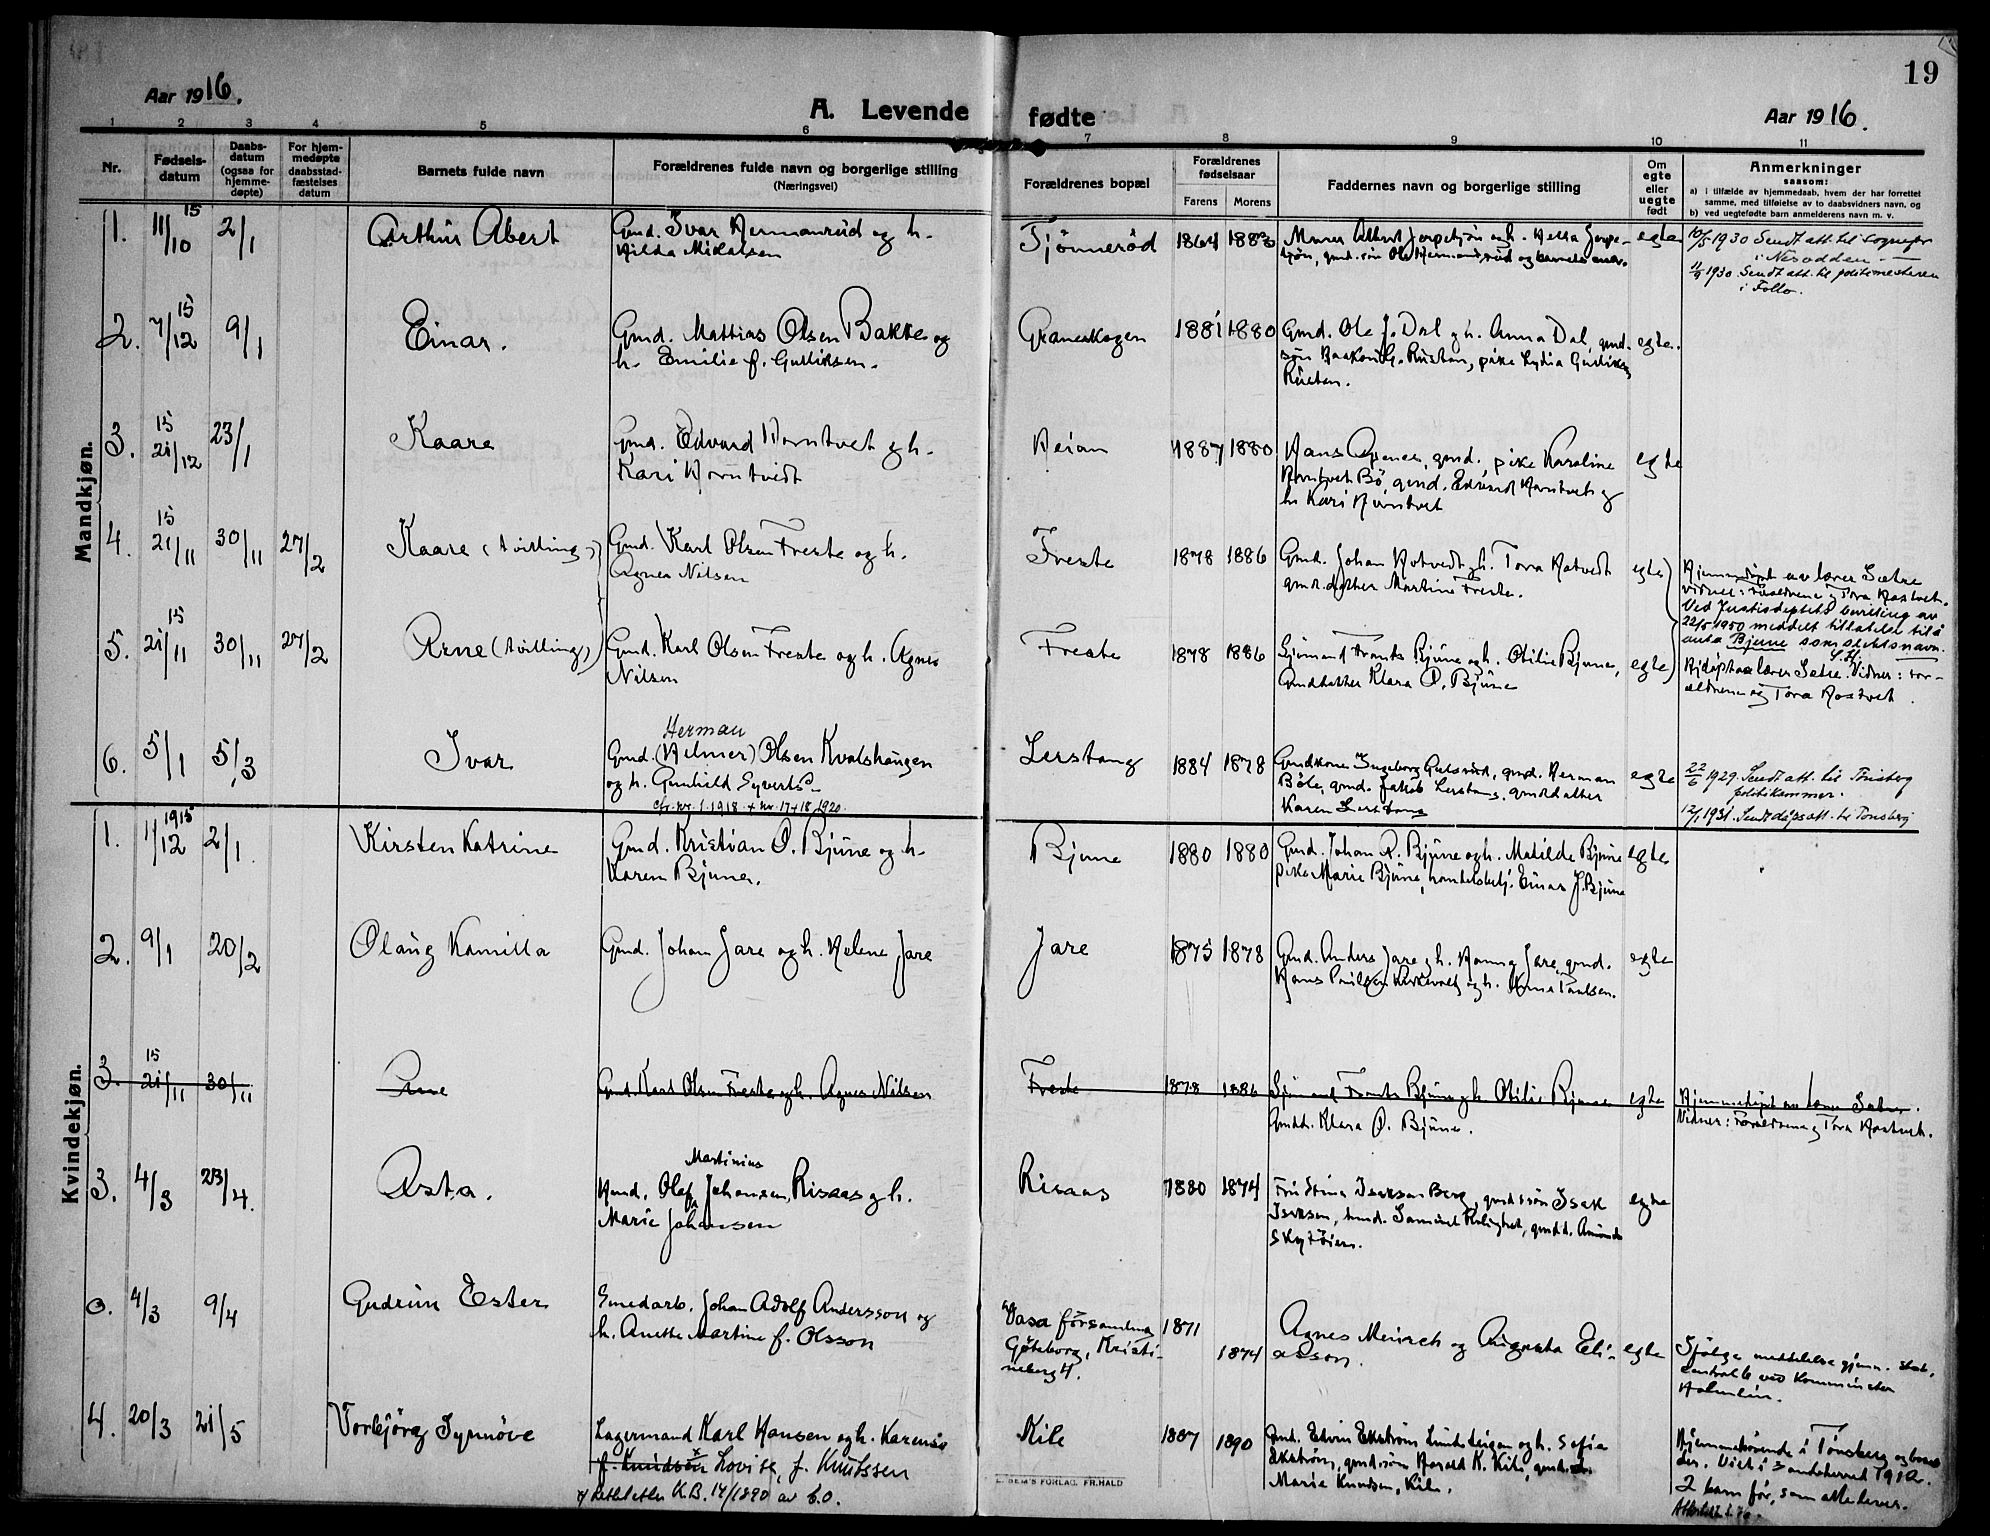 19
Aar 1916.
A. Levende fødte
Aar 1916.
1 2 3 4 5 6 7 8 9 10 11
Nr.
Fødsels-
datum
Daabs-
datum
(ogsaa for
hjemme-
døpte)
For hjem-
medøpte
daabsstad-
fæstelses
datum
Barnets fulde navn
Forældrenes fulde navn og borgerlige stilling
(Næringsvei)
Forældrenes bopæl
Forældrenes
fødselsaar
Farens Morens
Faddernes navn og borgerlige stilling
Om
egte
eller
uegte
født
Anmerkninger
saasom:
a) i tilfælde av hjemmedaab, hvem der har forrettet
samme, med tilføielse av to daabsvidners navn, og
b) ved uegtefødte barn anmelderens navn m. v.
Mandkjøn.
1. 11/10 15 2/1 Arthur Abert
Gmd. Ivar Hermansrud og h.
Hilda Mikalsen
Tjønnerød 1864 1883
egte
1930 Sendt att. til sognepr
i Nesodden.
1930. Sendt att. til politimesteren
i Follo.
2. 7/12 15 9/1 Einar.
Gmd. Mattias Olsen Bakke og
h. Emilie f. Gulliksen.
Graneskogen 1881 1880
Gmd. Ole J. Dal og h. Anna Dal, gmd.
søn Haakon G. Rustan, pike Lydia
Rustan.
egte.
3. 15 21/12 23/1 Kaare
Gmd. Edvard Horntvet og h.
Kari Horntvedt
Heian 1887 1880
Hans gmd. pike Karoline
Horntvet Bø, gmd. Edvard Horntvet og
h. Kari Horntvet
egte
4. 15 21/11 30/11 27/2 Kaare (tvilling)
Gmd. Karl Olsen Freste og h.
Agnes Nilsen
Freste 1878 1886
Gmd. Johan Hotvedt og h. Tora Hotvedt
gmd.datter Martine Freste.
egte
Hjemmedøpt av lærer Sætre
vidner: forældrene og Tora Hostvet.
Ved Justisdeptets bevilling av
22/5 1950 meddelt tillatelse til å
anta Bjune som slektsnavn.
5. 15 21/11 30/11 27/2 Arne (tvilling)
Gmd. Karl Olsen Freste og h. Agnes
Nilsen
Freste 1878 1886
Sjømand Frants Bjune og h. Otilie Bjune,
Gmddatter Klara O. Bjune
egte
Hjdøpt av lærer Sætre. Vidner: for-
ældrene og Tora Hostvet.
6. 5/1 5/3 Ivar
Herman
Gmd. (Helmer) Olsen Kvalshaugen
og h. Gunhild Syverts
cfr. nr. 1. 1918 + nr. 17 + 18, 1920.
Lerstang 1884 1878
Gmdkone Ingeborg Gulsrud, gmd. Herman
Böle, gmd. Jakob Lerstang, gmddatter
Karen Lerstang
egte
22/6 1929. Sendt att. til Tønsberg
politikammer.
12/1 1931. Sendt døpsatt. til Tønsberg
Kvindekjøn.
1. 11/12 1915 2/1. Kirsten Katrine
Gmd. Kristian O. Bjune og h.
Karen Bjune.
Bjune 1880 1880
Gmd. Johan R. Bjune og h. Matilde Bjune
pike Marie Bjune, handelsbetj. Einar J. Bjune
egte
2. 9/1 20/2 Olaug Kamilla
Gmd. Johan Jare og h. Helene Jare
Jare 1875 1878
Gmd. Anders Jare og h. Hanna Jare, gmd.
Hans Paulsen Kirkevold og h. Anna Paulsen.
egte
3. 15 21/11 30/11 Arne
Gmd. Karl Olsen Freste og h. Agnes Nilsen
Freste 1878 1886
Sjømand Frants Bjune og h. Otilie Bjune
Gmdd. Klara O. Bjune.
egte
Hjemmedøpt av lærer Sætre.
Vidner: Forældrene og Tora Hostvet.
3. 4/3 23/4. Asta.
Martinius
Hmd. Olaf Johansen, Risaas og h.
Marie Johansen
Risaas 1880 1874
Fru Stina Isaksen Berg, gmdssøn Isak
Isaksen, hmd. Samuel Rolighet, gmdd. Amanda
Skytøien.
egte
0. 4/3 9/4 Gudrun Ester
Smedarb. Johan Adolf Andersson og
h. Anette Martine f. Olsson
Vasa församling
Göteborg, Kristi-
neberg 4.
1871
1874
Agnes Meinech og Augusta Eli-
asson.
egte
Ifølge meddelelse gjenn.
4. 20/3 21/5 Torbjørg Synnøve
Lagermand Karl Hansen og h. Karen
f. Knudsen Lovise, f. Knutssen
K.B. 14/1890
Kile 1887 1890
Gmd. Edvin Ekstrøm Lindsteigen og h. Sofie
Ekstrøm, gmd.søn Harald K. Kile, gmd.
Marie Knudsen, Kile.
Hjemmehørende i Tønsberg og
2 barn før, som alle lever.
E. SEM'S FORLAG, FR.HALD